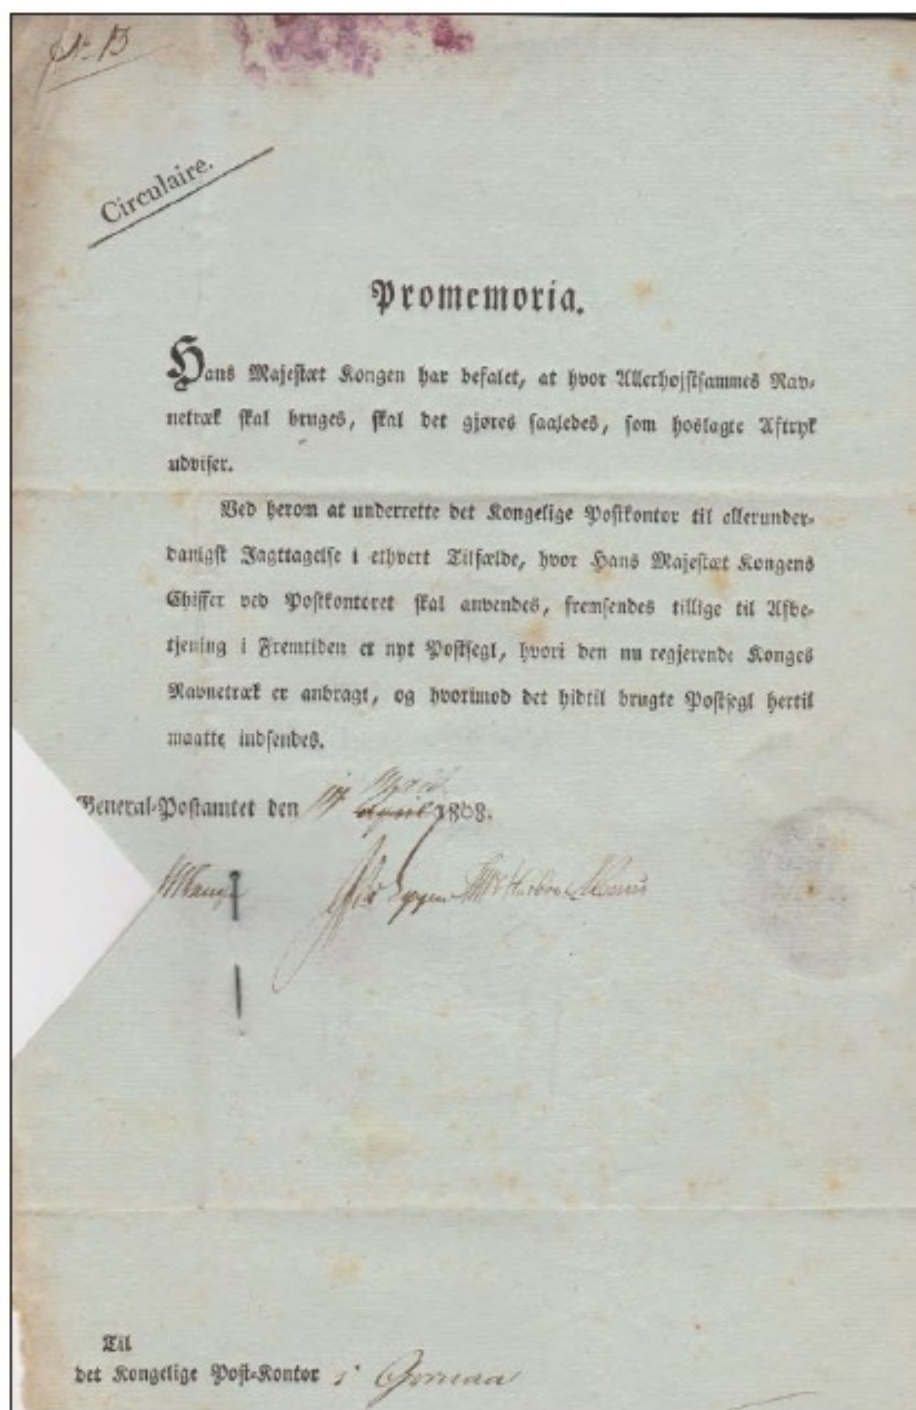 No 13
Circulaire.
Promemoria.
Hans Majestæt Kongen har befalet, at hvor Allerhøjstsammes Nav-
netræk skal bruges, skal det gjøres saaledes, som hoslagte Aftryk
udviser.
Ved herom at underrette det Kongelige Postkontor til allerunder-
danigst Jagttagelse i ethvert Tilfælde, hvor Hans Majestæt Kongens
Chiffer ved Postkontoret skal anvendes, fremsendes tillige til Afbe-
tjening i Fremtiden et nyt Postsegl, hvori den nu regjerende Konges
Navnetræk er anbragt, og hvorimod det hidtil brugte Postsegl hertil
maatte indsendes.
General-Postamtet den April 1808.
Til
det Kongelige Post-Kontor i